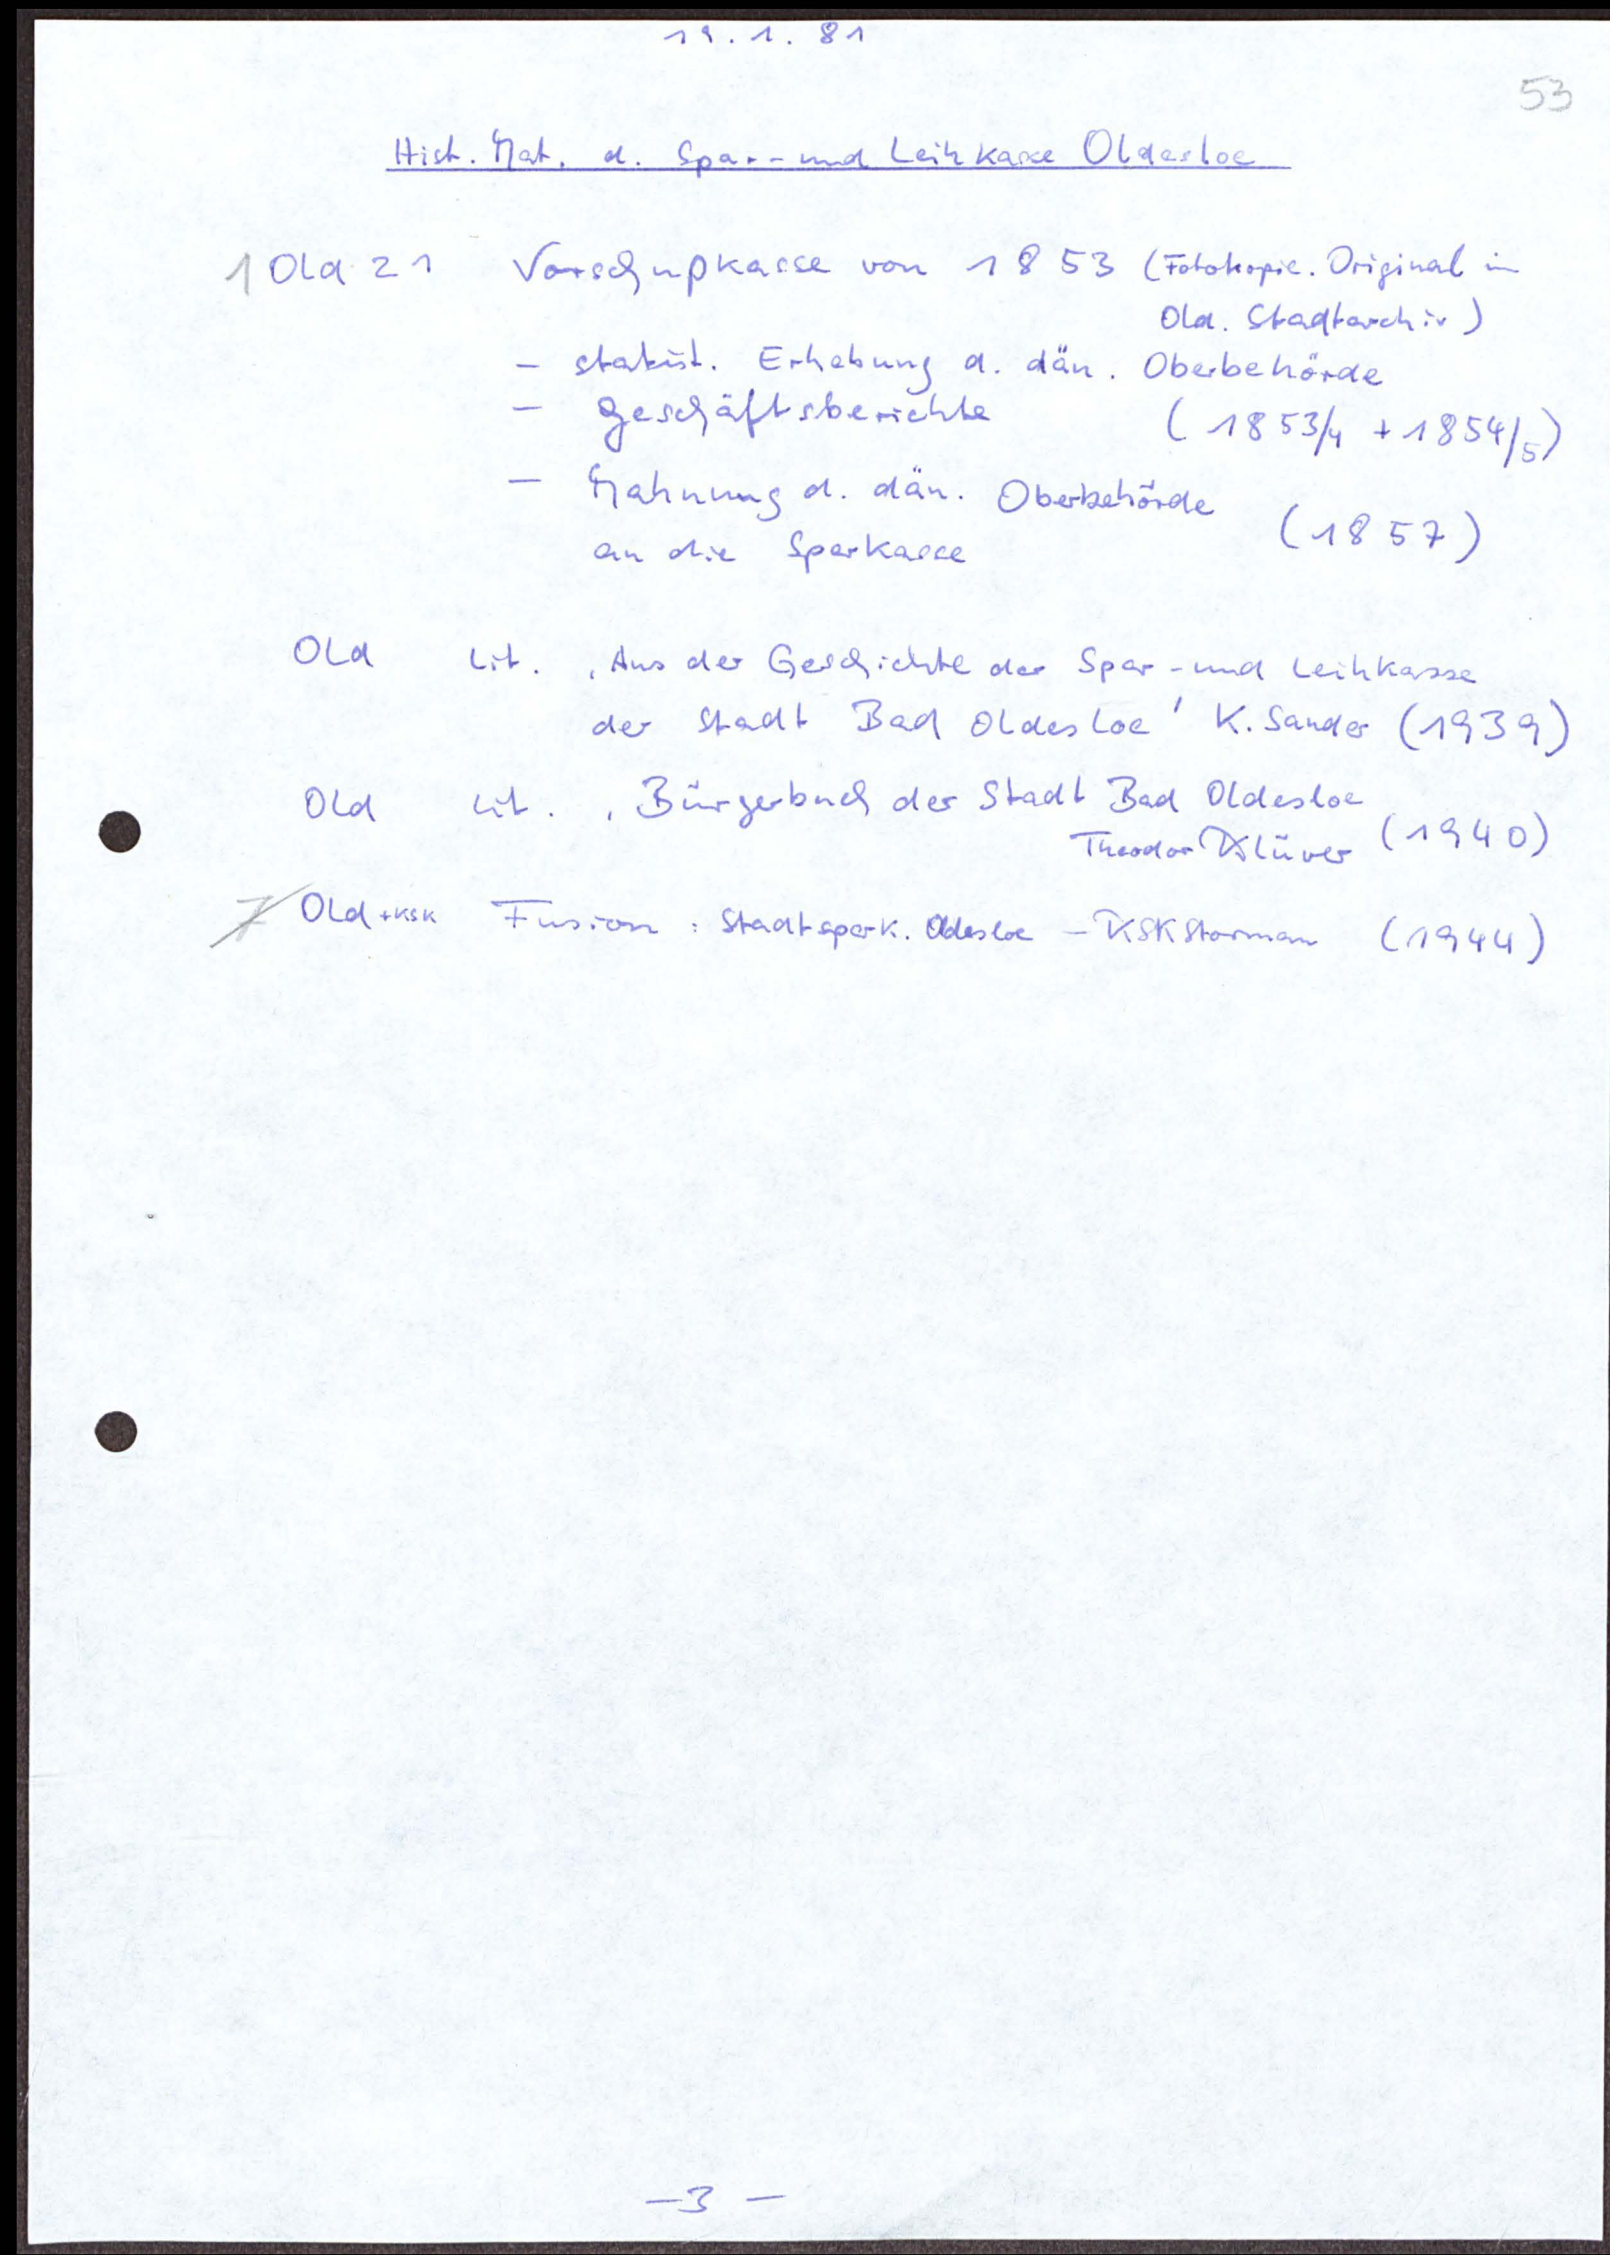 19.1.81
53
Hist. Mat. d. Spar- und Leihkasse Oldesloe
1 Old 21 Vorschußkasse von 1853 (Fotokopie. Original in
Old. Stadtarchiv)
- statist. Erhebung d. dän. Oberbehörde
- Geschäftsberichte (1853/4 + 1854/5)
- Mahnung d. dän. Oberbehörde
an die Sparkasse (1857)
Old Lit. ‚Aus der Geschichte der Spar- und Leihkasse
der Stadt Bad Oldesloe' K. Sander (1939)
Old Lit. ‚Bürgerbuch der Stadt Bad Oldesloe
Theodor Klüver (1940)
7 Old + KSK Fusion: Stadtspark. Oldesloe - KSK Storman (1944)
- 3 -